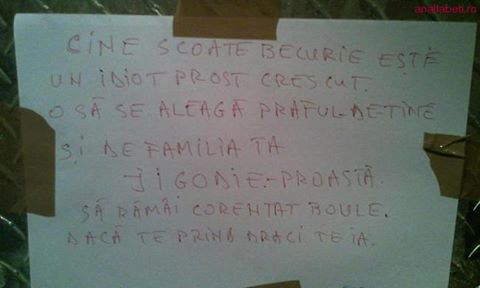 analfabeti.ro
CINE SCOATE BECURIE ESTE
UN IDIOT PROST CRESCUT.
O SĂ SE ALEAGĂ PRAFUL-DETINE
ȘI DE FAMILIA TA
JIGODIE-PROASTĂ.
SĂ RĂMÂI CORENTAT BOULE.
DACĂ TE PRIND DRACI TE IA.